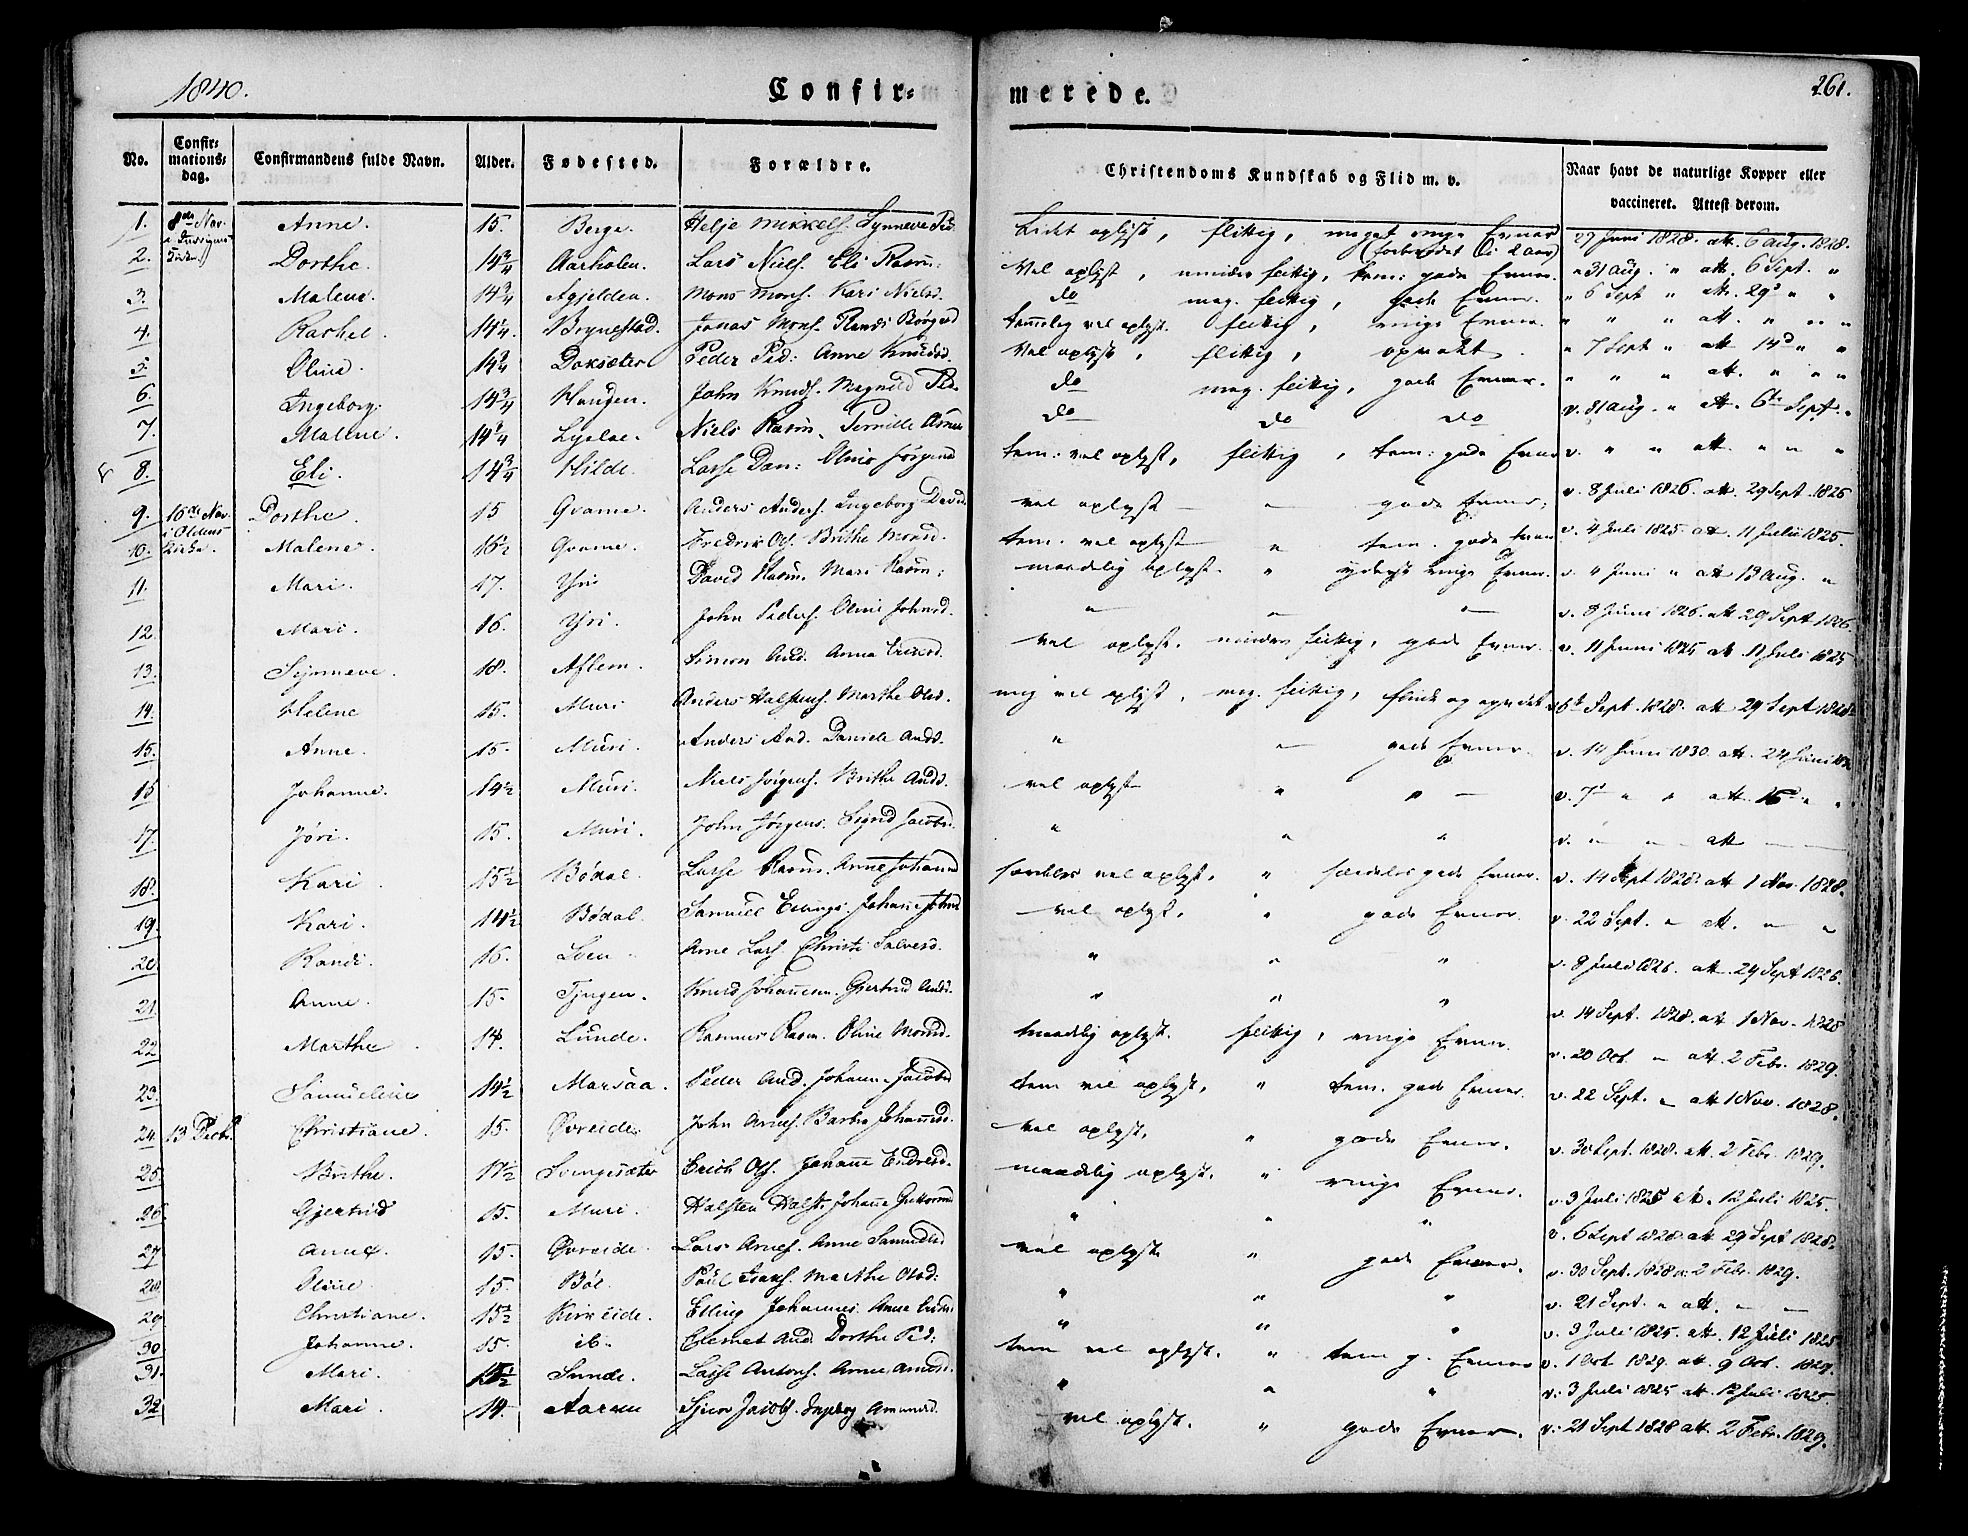 1840. Confir= merede. 261.
No. Confir=mations=dag. Confirmandens fulde Navn. Alder. Fødested. Forældre. Christendoms Kundskab og Flid m. v. Naar havt de naturlige Kopper eller vaccineret. Attest derom.
1. 8de Nov. Anne. 15. Berge. Helje Mikkels. Synneve Ped. Lidet oplyst, flittig, meget ringe Evner 27 Juni 1828. att. 6 Aug. 1828.
2. Dorthe. 14 3/4 Aarholen. Lars Niels. Eli Rasm: Vel oplyst, mindre flittig, tem: gode Evner. " 31 Aug. " att. 6 Sept. "
3. Malene. 14 3/4 Agjelden. Mons Mons. Kari Nielsd. do meg. flittig, gode Evner. " 6 Sept " att. 29 " "
4. Rachel 14 1/4. Brynestad. Jonas Mons. Randi Børgesd temmelig vel oplyst. flittig, ringe Evner. " " " att. " " " "
5. Oline. 14 3/4 Doksæter Peder Ped: Anne Knudsd. Vel oplyst, flittig, opvakt. " 7 Sept " att 14d " "
6. Ingeborg. 14 3/4 Haugen. John Knuds. Magnild Ped. do meg. flittig, gode Evner. " " " att. " " "
7. Malene. 14 1/4 Lysloe. Niels Rasm. Pernille do do do v. 31 Aug. " att. 6te Sept. "
8. Eli. 14 3/4 Hilde. Lasse Dan: Oline Jørgensd tem: vel oplyst, flittig, tem: gode Evner v. " " att. " " "
9. 16de Nov. i Oldens Kirke. Dorthe. 15 Qvame. Anders Anders. Ingeborg David vel oplyst — " gode Evner, v. 8 Juli 1826. att. 29 Sept. 1826
10. Malene. 16 1/2 Qvame. Fredrik Ol. Brithe Monsd. tem. vel oplyst " tem. gode Evner v. 4 Juli 1825. att. 11 Julii 1825.
11. Mari. 17. Yri David Rasm. Mari Rasm: maadelig oplyst. " yderst ringe Evner. v. 4 Juni " att 13 Aug. "
12. Mari. 16. Yri. John Peders. Oline Johnsd. " " " v. 8 Juni 1826. att. 29 Sept 1826.
13. Synneve. 18. Aflem. Simon And. Anna Eriksd. vel oplyst. mindre flittig, gode Evner. v. 11 Juni 1825 att 11 Juli 1825
14. Helene 15. Muri Anders Halstens. Marthe Olsd. meg vel oplyst, meg. flittig, 6te Sept. 1828. att 29 Sept 1828.
15. Anne. 15. Muri. Anders And. Daniele Andsd. " — gode Evner. v. 14 Juni 1830. att. 24 Juni
Johanne. 14 1/2 Muri. Niels Jørgens. Brithe Andsd. vel oplyst " " — v. 7d " " att 15 " "
17. Jøri. 15. Muri. John Jørgens. Sigrid Jacobsd. " " " v. " " att — —
18. Kari. 15 1/2 Bødal. Lasse Rasm. Anne Johannsd særdeles vel oplyst. " særdeles gode Evner. v. 14 Sept 1828. att 1 Nov. 1828.
19. Kari. 14 1/2 Bødal. Samuel Ellings. Johanne Johnsd vel oplyst. " gode Evner. v. 22 Sept. " att. — "
20. Randi. 16. Loen. Arne Lars. Christi Salvesd. " " " v. 8 Juli 1826. att. 29 Sept 1826.
21. Anne. 15. Tjugen. Knud Johannesen. Gjertrud Andsd. " " " v. 14 Sept. 1828. att. 1 Nov. 1828
22 Marthe 14. Lunde. Rasmus Rasm. Oline Monsd. maadelig oplyst. flittig, ringe Evner. v. 20 Oct. " att. 2 Febr. 1829.
23. Samueline 14 1/2 Marsaa. Peder And. Johanne Jacobsd tem vel oplyst. " tem. gode Evner. v. 22 Sept. " att 1 Nov. 1828.
24. 13 Decbr. Christiane. 15. Øvreide John Arnes. Barbro Johannesd. vel oplyst. " gode Evner. v. 30 Sept. 1828. att. 2 Febr. 1829.
25. Brithe. 17 1/2 Svingesæter Erich Ols. Johanne Endresd. maadelig oplyst. " ringe Evner. v. 3 Juli 1825 att. 12 Juli 1825.
26. Gjertrud 15. Muri. Halsten Halst. Johanne Guttormsd " " " v. 6 Sept 1828. att 29 Sept 1828.
27. Anne. 15. Øvreide. Lars Arnes. Anne Samuelsd vel oplyst " gode Evner. v. 30 Sept. 1828 a: 2 Febr. 1829.
28. Oline. 15. Bøe. Paul Isaks. Marthe Olsd: " " " v. 21 Sept. " att. — —
29 Christiane. 15 1/2 Kirkeide. Elling Johannes. Anne " " " v. 3 Juli 1825. att. 12 Juli 1825
30 Johanne. 15. ib. Clemet And. Dorthe Ped: tem vel oplyst. " tem g. Evner v. 1 Oct 1829. att. 9 Oct. 1829.
31. Mari. 15 1/2 Sunde. Lasse Antons. Anne Amundsd. " " " v. 3 Juli 1825 att. 12 Juli 1825.
32 Mari. 14. Aaraen Jacobs. Ingeborg Amundsd. vel oplyst. " gode Evner. v. 21 Sept 1828 att. 2 Febr. 1829.